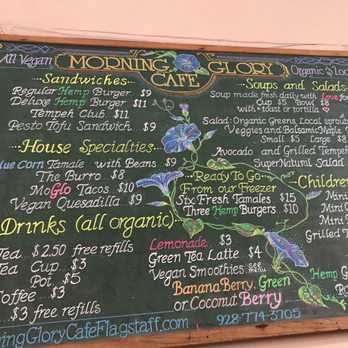 All Vegan
MORNING GLORY
CAFE
Organic & Loc
Sandwiches
Regular Hemp Burger $9
Deluxe Hemp Burger $11
Tempeh Club $11
Pesto Tofu Sandwich $9
House Specialties
Blue Corn Tamale with Beans $9
The Burro $8
MoGlo Tacos $10
Vegan Quesadilla $9
Drinks (all organic)
Tea $2.50 free refills
Tea Cup $3
Pot $5
Coffee $3
$3 free refills
Soups and Salads
Soup made fresh daily with Love
Cup $5 Bowl $8
with toast or tortilla
Salad: Organic Greens, Local sprouts
Veggies and Balsamic Maple
Small $ Large $
Avocado and Grilled Temp
SuperNatural Salad
Ready To Go
From our Freezer
Six Fresh Tamales $15
Three Hemp Burgers $10
Children
Mini
Mini
Mini
Grilled T
Lemonade $3
Green Tea Latte $4
Vegan Smoothies see menu
BananaBerry, Green
or Coconut Berry
Green Hemp G
ningGloryCafeFlagstaff.com
928-774-3705